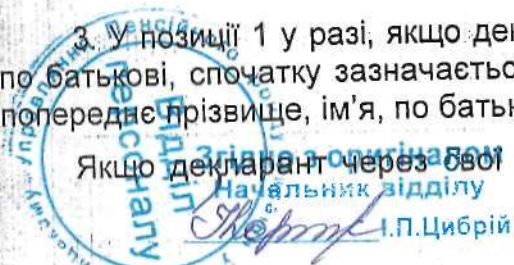 3. У позиції 1 у разі, якщо де
по батькові, спочатку зазначаєтьс
попереднє прізвище, ім'я, по бать
Якщо декларант через свої
Згідно з оригіналом
Начальник відділу
І.П.Цибрій
Відділ
персоналу